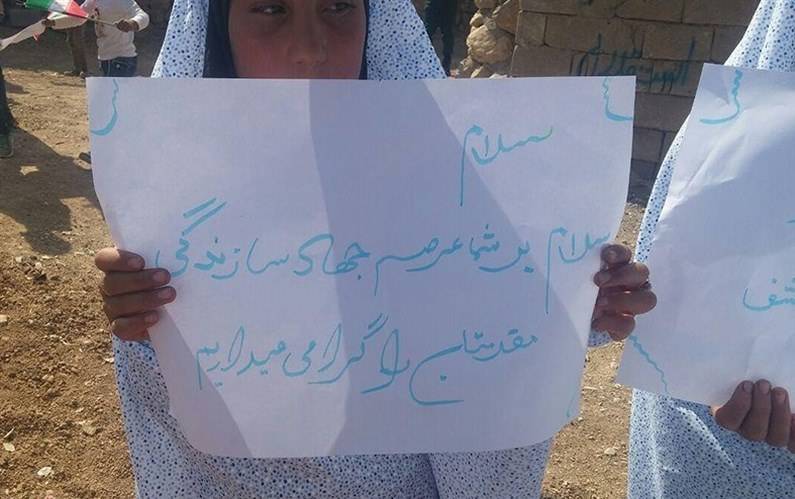 سلام
سلام بر شما عرصه جهاد سازندگی
مقدمتان را گرامی میداریم